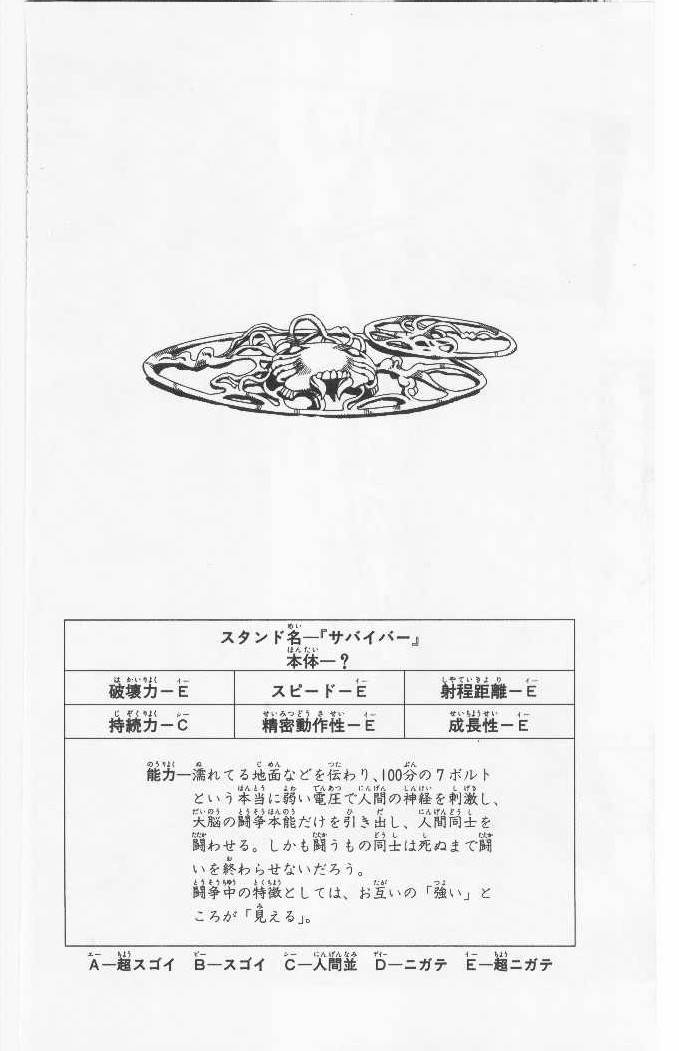 スタンド名―『サバイバー』
本体―？
破壊力―E スピード―E 射程距離―E
持続力―C 精密動作性―E 成長性―E
能力―濡れてる地面などを伝わり、100分の7ボルト
という本当に弱い電圧で人間の神経を刺激し、
大脳の闘争本能だけを引き出し、人間同士を
闘わせる。しかも闘うもの同士は死ぬまで闘
いを終わらせないだろう。
闘争中の特徴としては、お互いの「強い」と
ころが「見える」。
A―超スゴイ B―スゴイ C―人間並 D―ニガテ E―超ニガテ